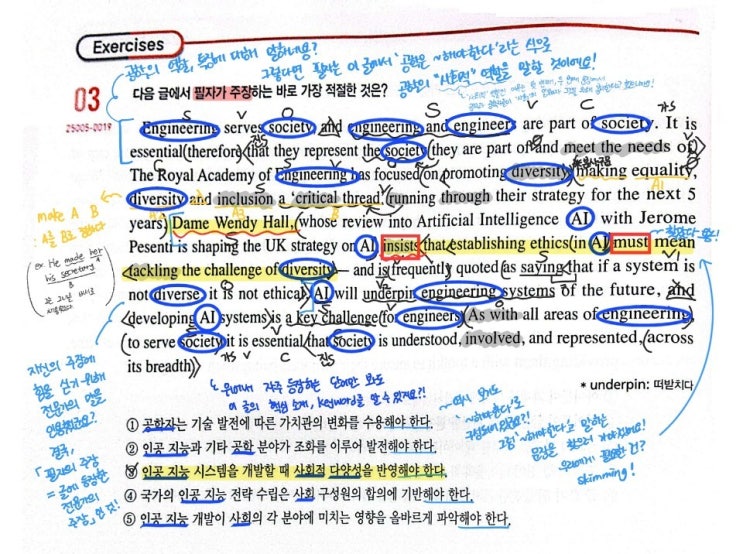 Exercises
공학의 역할, 특징에 대해 말하네요?
그렇다면 필자는 이 글에서 '공학은 ~해야한다'라는 식으로
공학의 "사회적" 역할을 말할 것이에요!
03
다음 글에서 필자가 주장하는 바로 가장 적절한 것은?
25005-0019
Engineering serves society and engineering and engineers are part of society. It is
essential therefore that they represent the society they are part of and meet the needs of.
The Royal Academy of Engineering has focused on promoting diversity, making equality,
diversity and inclusion a 'critical thread' running through their strategy for the next 5
years. Dame Wendy Hall, whose review into Artificial Intelligence AI with Jerome
Pesenti is shaping the UK strategy on AI, insists that establishing ethics in AI must mean
tackling the challenge of diversity — and is frequently quoted as saying that if a system is
not diverse it is not ethical. AI will underpin engineering systems of the future, and
developing AI systems is a key challenge for engineers. As with all areas of engineering,
to serve society it is essential that society is understood, involved, and represented, across
its breadth.
make A B
A를 B로 만들다
ex. He made her
his secretary
자신의 주장에
힘을 싣기 위해
전문가의 말을
인용했군요?
결국,
「필자의 주장
= 글에 등장한
전문가의
주장」인 것!
* underpin: 떠받치다
위에서 자주 등장하는 단어만 봐도
이 글의 핵심 소재, keyword를 알 수 있겠죠?!
① 공학자는 기술 발전에 따른 가치관의 변화를 수용해야 한다.
② 인공 지능과 기타 공학 분야가 조화를 이루어 발전해야 한다.
③ 인공 지능 시스템을 개발할 때 사회적 다양성을 반영해야 한다.
④ 국가의 인공 지능 전략 수립은 사회 구성원의 합의에 기반해야 한다.
⑤ 인공 지능 개발이 사회의 각 분야에 미치는 영향을 올바르게 파악해야 한다.
역시 보기도
'~해야한다'로
구성돼있었죠?!
그럼 '~해야한다'고 말하는
문장을 찾으러 가야겠네요!
우리에게 필요한 건?
skimming!